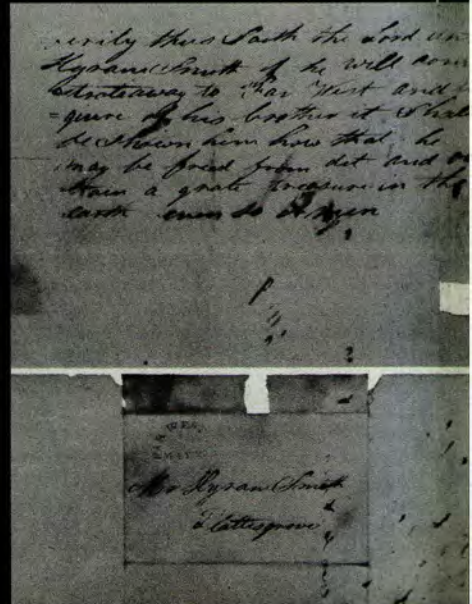 verily thus Saith the Lord un
Hyram Smith if he will com
strateaway to Far West and
=quire of his brother it Shal
be Shown him how that he
may be freed from det and o
a grate treasure in the
earth even so Amen
FAR WEST
Mr Hyram Smith
Plattesgrove